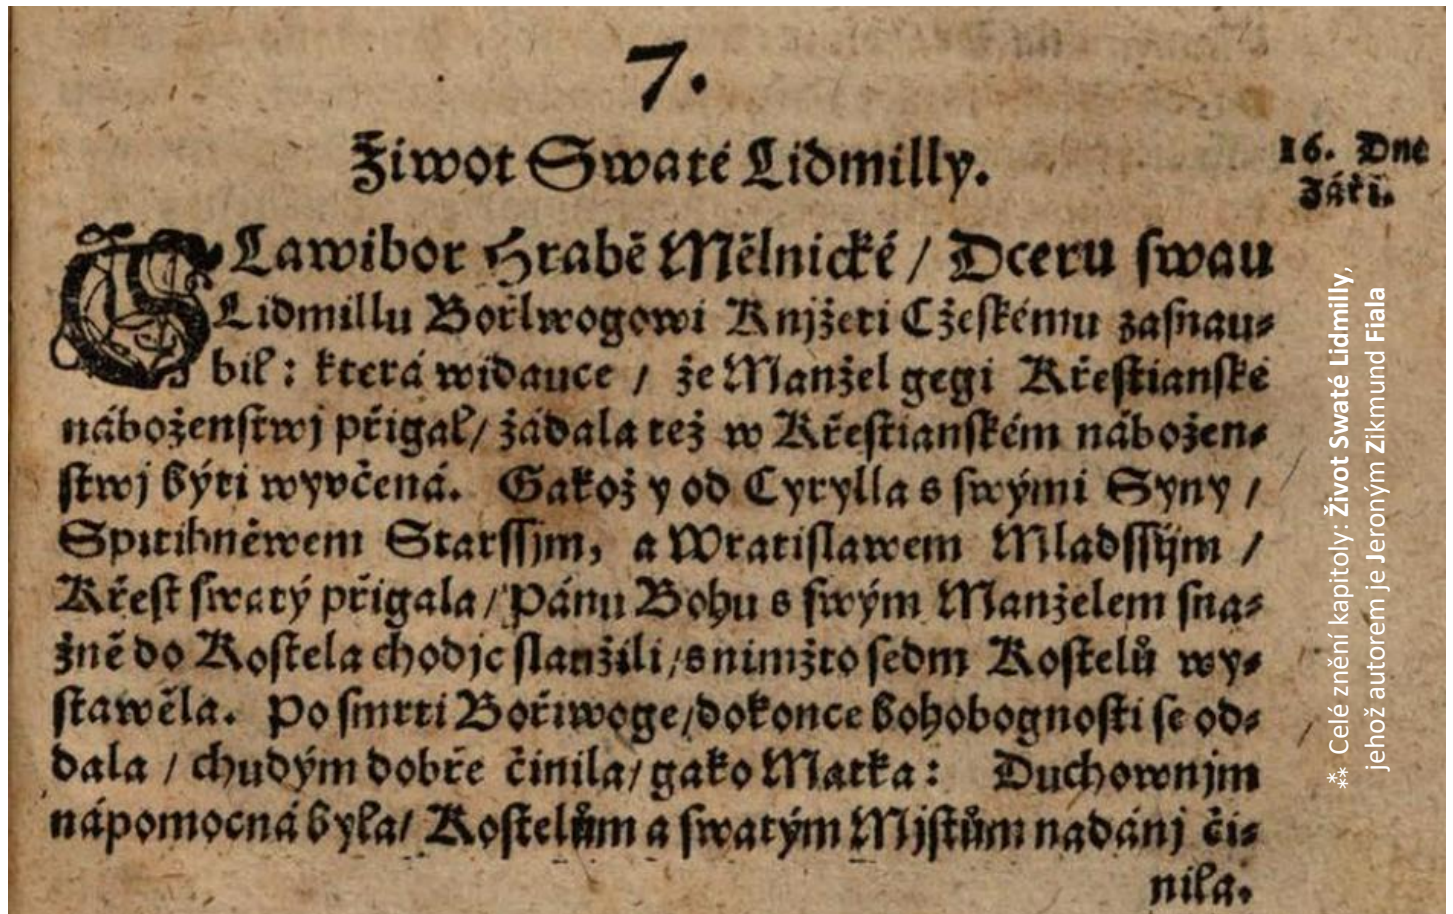 7.
Žiwot Swaté Lidmilly.
16. Dne
Záři.
SLawibor Hrabě Mělnické / Dceru swau
Lidmillu Bořiwogowi Knjžeti Cžeſkému zaſnau-
bil: která widauce / že Manžel gegi Křeſtianſké
náboženſtwj přigal / žádala též w Křeſtianſkém nábožen-
ſtwj býti wyvčená. Gakož y od Cyrylla s ſwými Syny /
Spitihněwem Starſſjm, a Wratiſlawem Mladſſijm /
Křeſt ſwatý přigala / Pánu Bohu s ſwým Manželem ſna-
žně do Koſtela chodjc ſlaužili / s nimžto ſedm Koſtelů wy-
ſtawěla. Po ſmrti Bořiwoge / dokonce bohobognoſti ſe od-
dala / chudým dobře činila / gako Matka: Duchownjm
nápomocná byla / Koſtelům a ſwatým Mjſtům nadánj či-
nila.
** Celé znění kapitoly: Život Swaté Lidmilly,
jehož autorem je Jeroným Zikmund Fiala